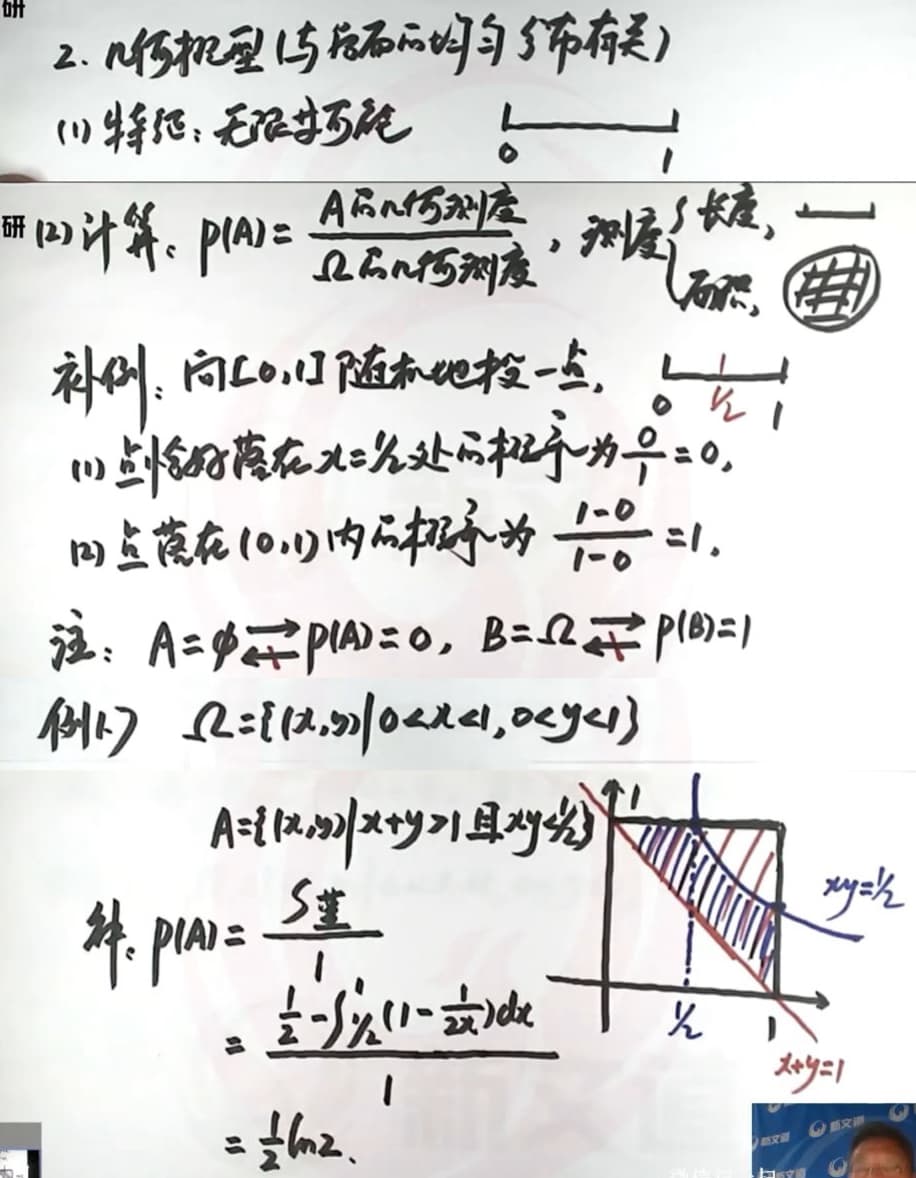 研
2. 几何概型(与后面的均匀分布有关)
(1) 特征:无限等可能
0 1
研
(2) 计算: P(A)= A的几何测度/Ω的几何测度, 测度{长度, 面积,
补例:向[0,1]随机地投一点,
0 1/2 1
(1) 点恰好落在x=1/2处的概率为0/1=0,
(2) 点落在(0,1)内的概率为 (1-0)/(1-0)=1.
注: A=φ⇄P(A)=0, B=Ω⇄P(B)=1
例1.7 Ω={(x,y)|0<x<1,0<y<1}
A={(x,y)|x+y>1且xy<1/2}
1
xy=1/2
解: P(A)= S蓝/1
= (1/2-∫_{1/2}^{1}(1-1/(2x))dx)/1
1/2 1
x+y=1
= 1/2 ln2.
新文道
新文道
新文道